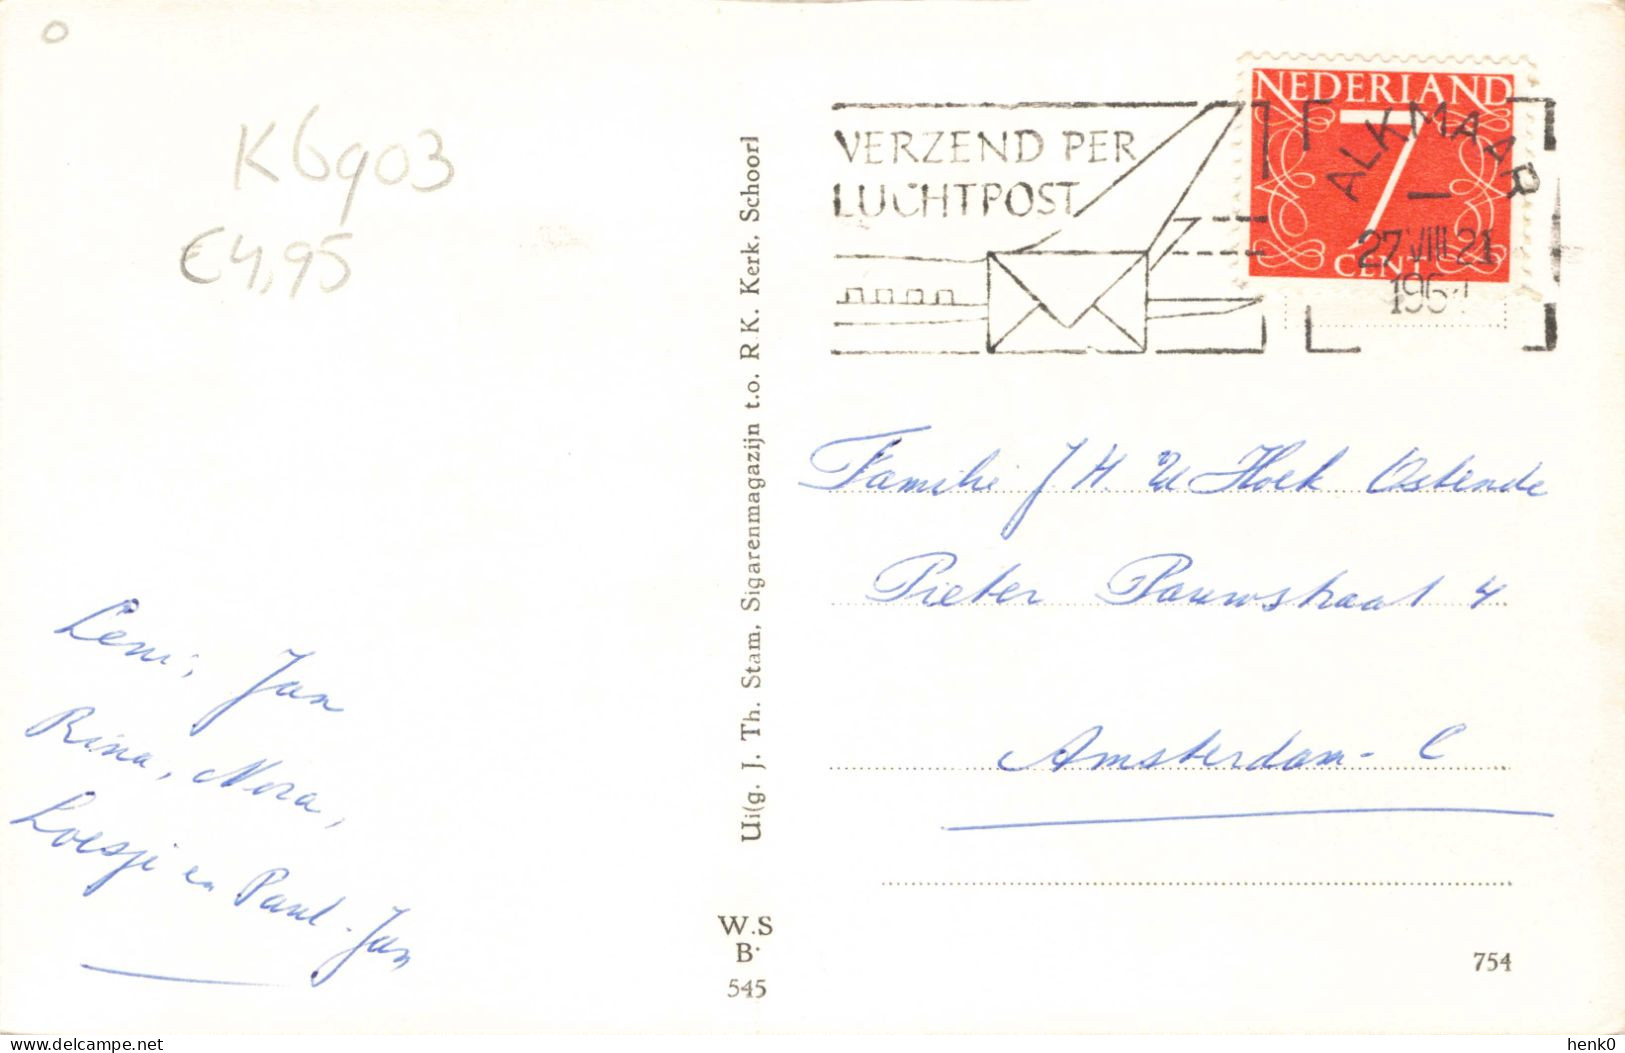 K6903
€4,95
Leni, Jan
Rina, Nora,
Loesje en Paul-Jan
Uitg. J. Th. Stam, Sigarenmagazijn t.o. R. K. Kerk, Schoorl
W.S
B.
545
VERZEND PER
LUCHTPOST
NEDERLAND
7
CENT
ALKMAAR
27 VIII 21
Familie J H. Hoek Ostende
Pieter Pauwstraat 4
Amsterdam - C
754
henk0